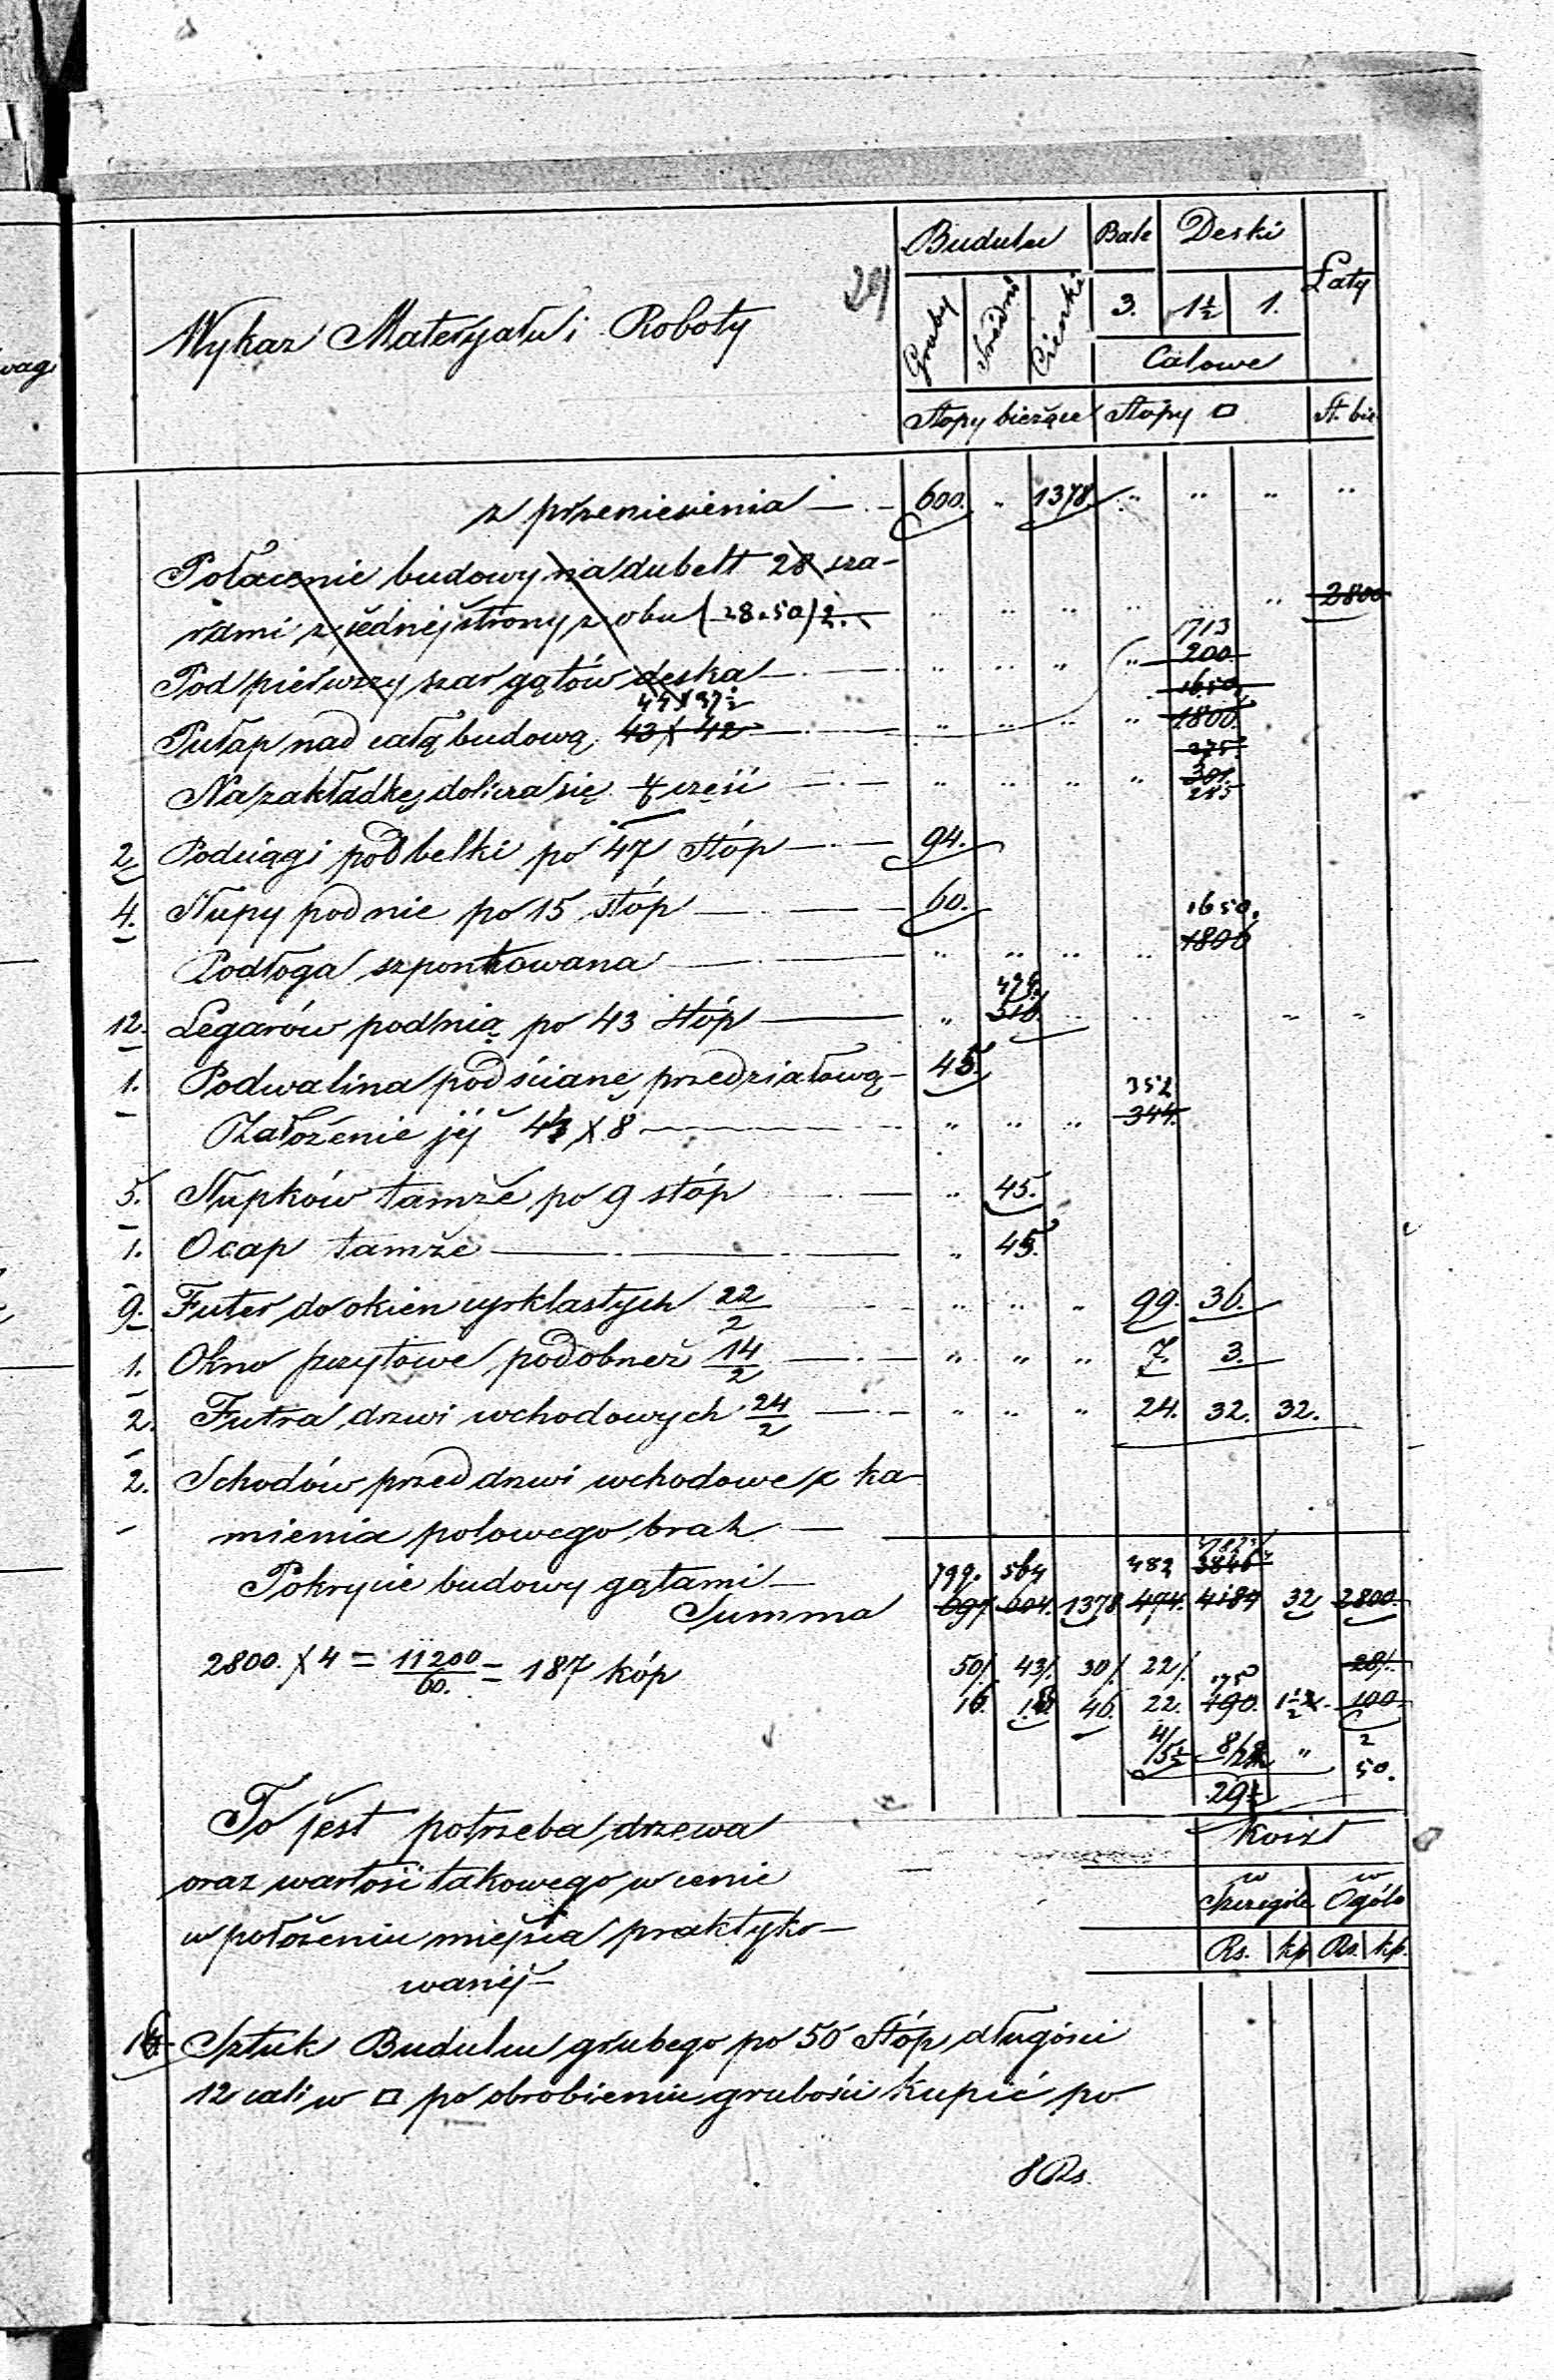 29
Wykaz Materyału i Roboty
Budulcu Bale Deski Łaty
Gruby Średni Cienki 3. 1½ 1.
Calowe
Stopy bieżące Stopy □ St. bie
z przeniesienia — 600. " 1378. " " " "
Połacenie budowy na dubelt 28 sza-
rami z jednej strony z obu (28×50) 2. " " " " " " 2800
Pod pierwszy szar gątów deska — " " " " 1713 200
44 × 37½ 1650
Pułap nad całą budową 43 × 42 — " " " " 1800
275
Na zakładkę dolicza się część — " " " " 301. 285
2 Podciągi pod belki po 47 stóp — 94.
4. Słupy pod nie po 15 stóp — 60. 1650.
Podłoga szpontowana — " " " " 1800
12. Legarów pod nią po 43 stóp — " 516. " " " " "
1. Podwalina pod ścianę przedziałową — 45. 352
Założenie jéj 44 × 8 — " " " 344.
5. Słupków tamże po 9 stóp — " 45.
1. Ocap tamże — " 45.
9. Futer do okien cyrklastych 22/2 — " " " 99. 36.
1. Okno szczytowe podobneż 14/2 — " " " 7. 3.
2. Futra drzwi wchodowych 24/2 — " " " 24. 32. 32.
2. Schodów przed drzwi wchodowe z ka-
mienia polowego brak —
Pokrycie budowy gątami — 799. 564 482 3846
Summa 697 604. 1378 494. 4184 32 2800.
2800 × 4 = 11200/60. = 187 kóp 50/. 43/. 30/. 22/. 175 28/.
16. 46. 22. 190. 100
2
29½ 50.
To jest potrzeba drzewa Koszt
oraz wartość takowego w cenie w Szczególe w Ogóle
w położeniu miejsca praktyko-
Rs. kp Rs. kp.
wanéj —
16 Sztuk Budulcu grubego po 50 Stóp długości
12 cali w □ po obrobieniu grubości kupić po
8 Rs.